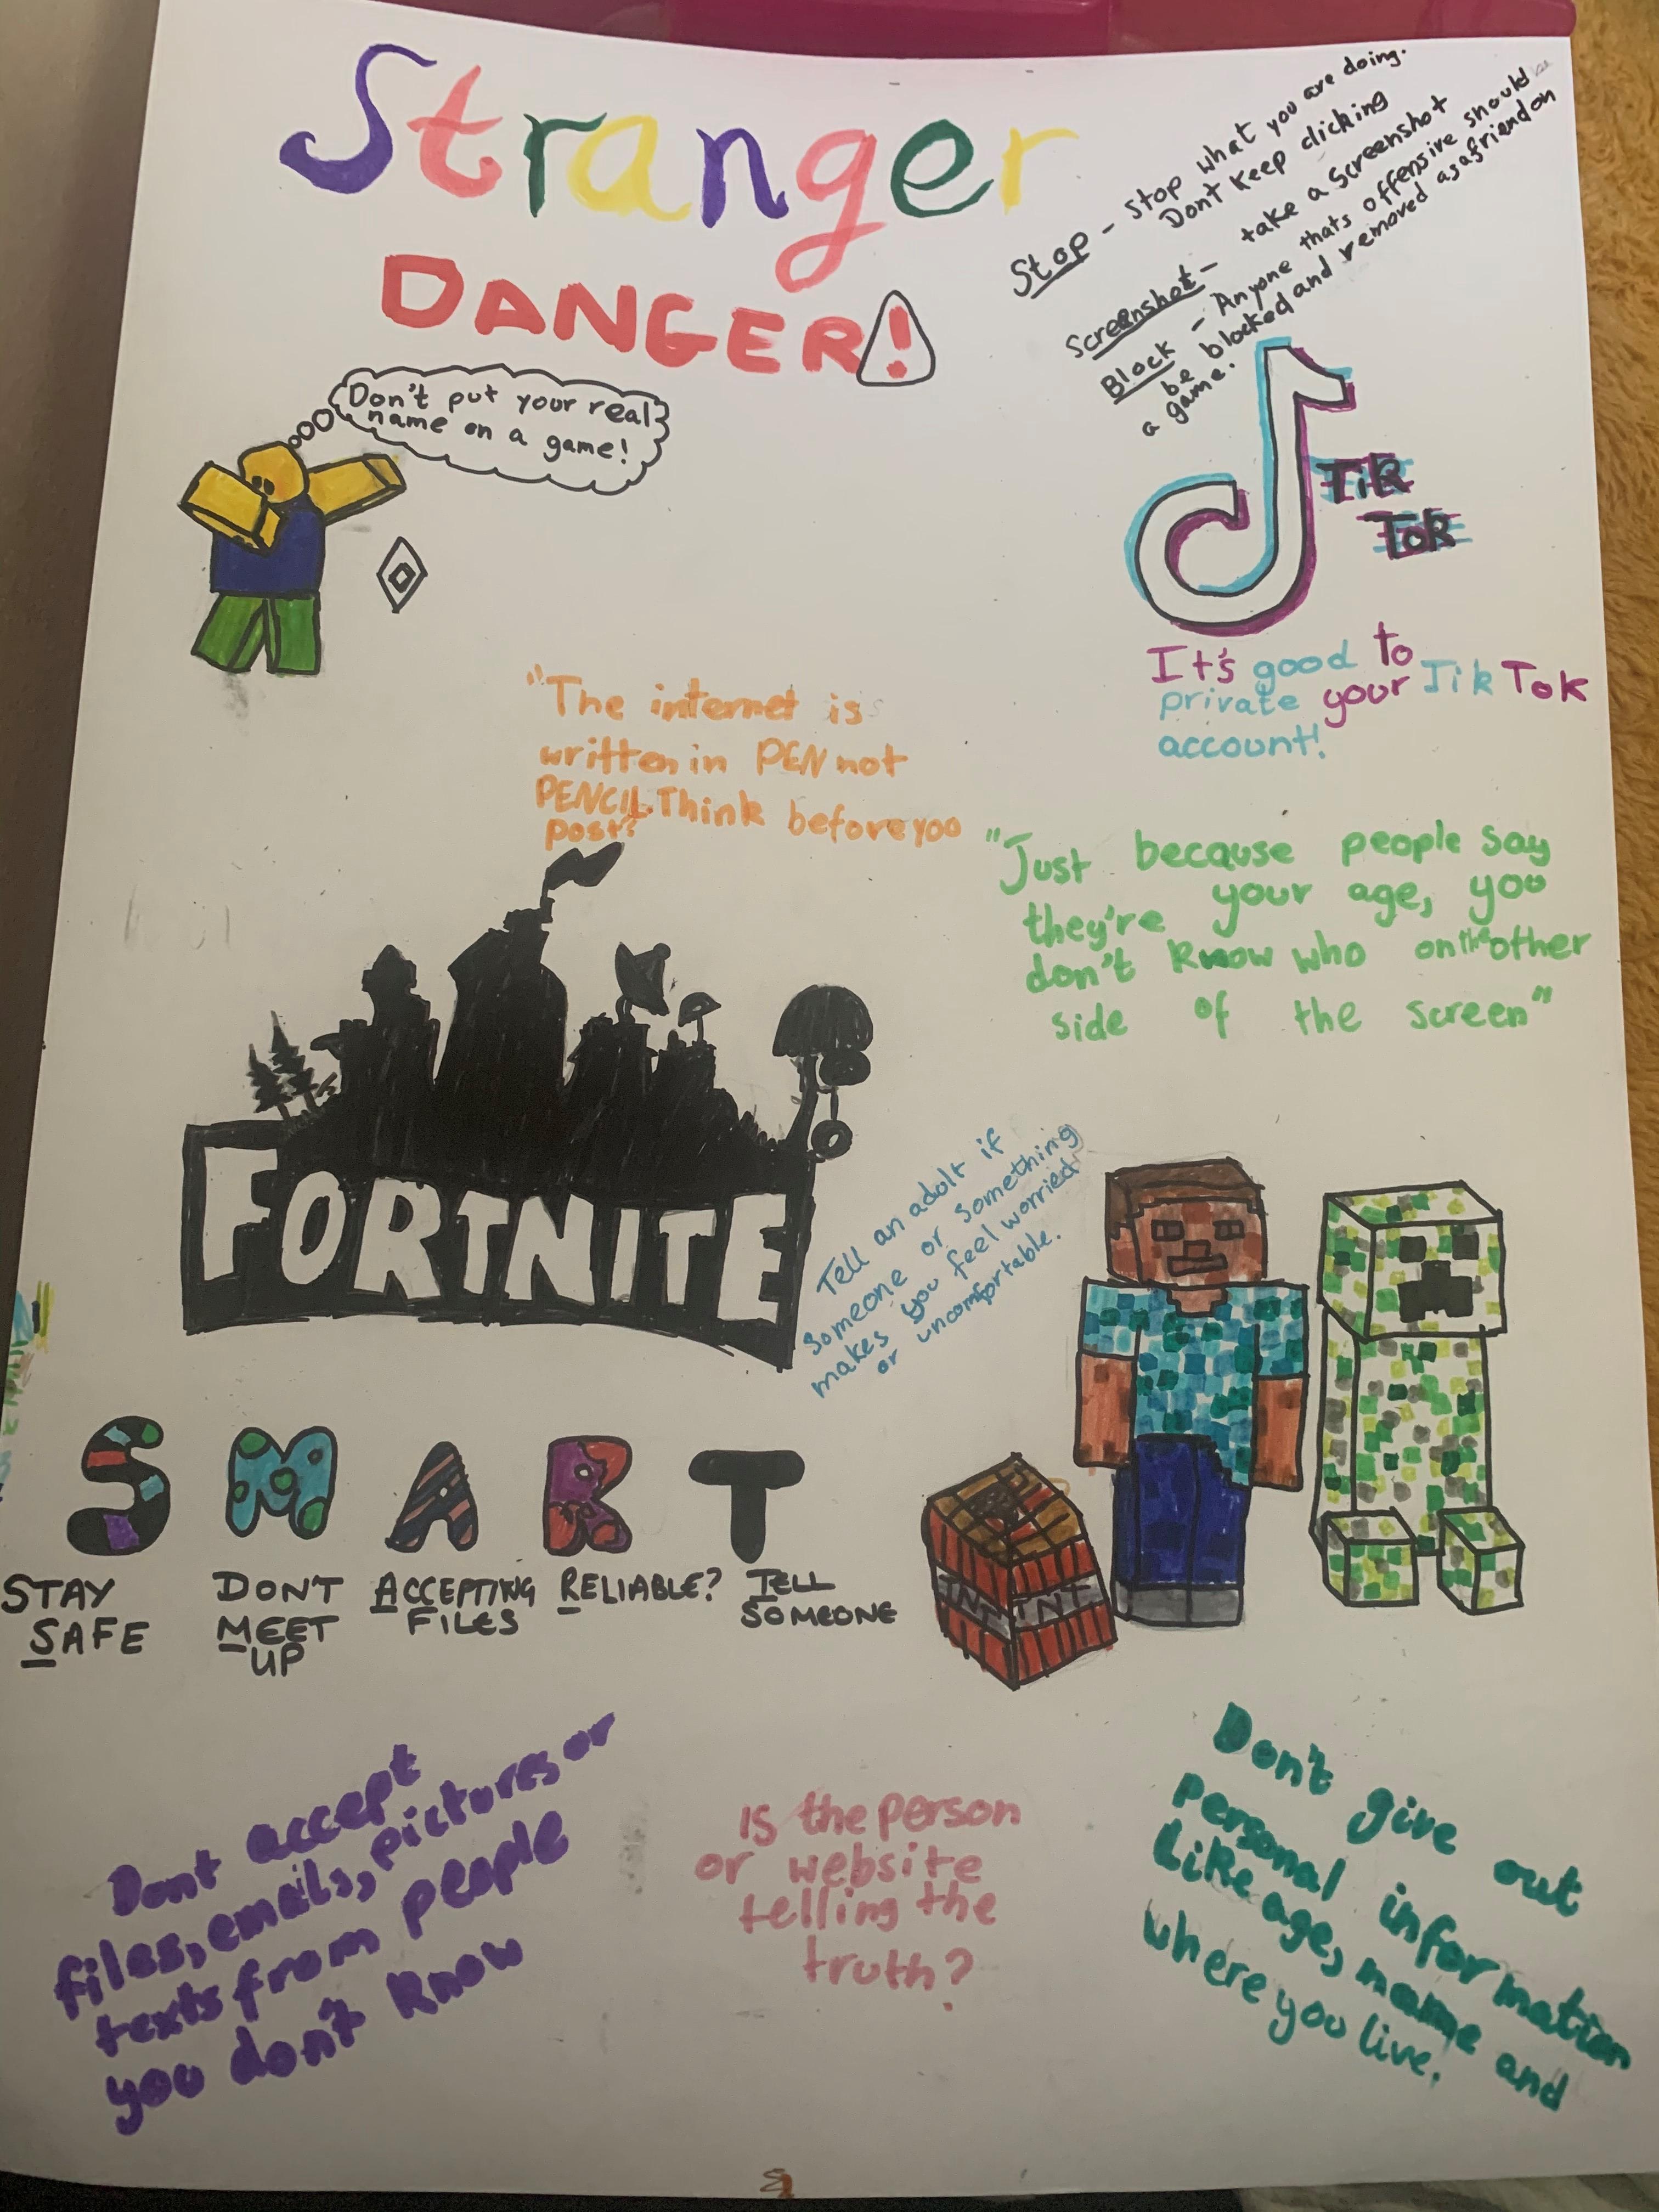 Stranger
DANGER!
Stop - Stop what you are doing.
Dont keep clicking
Screenshot - take a Screenshot
Block - Anyone thats offensive should
be blocked and removed as a friend on
a game.
Don't put your real
name on a game!
Tik
Tok
It's good to
private your Tik Tok
account!
"The internet is
written in PEN not
PENCIL. Think before you
post"
"Just because people say
they're your age, you
don't know who on the other
side of the screen"
FORTNITE
Tell an adult if
someone or something
makes you feel worried
or uncomfortable.
TNT TNT
S M A R T
STAY
SAFE
DON'T
MEET
UP
ACCEPTING
FILES
RELIABLE?
TELL
SOMEONE
Dont accept
files, emails, pictures or
texts from people
you don't know
Is the person
or website
telling the
truth?
Don't give out
personal information
Like age, name and
where you live.